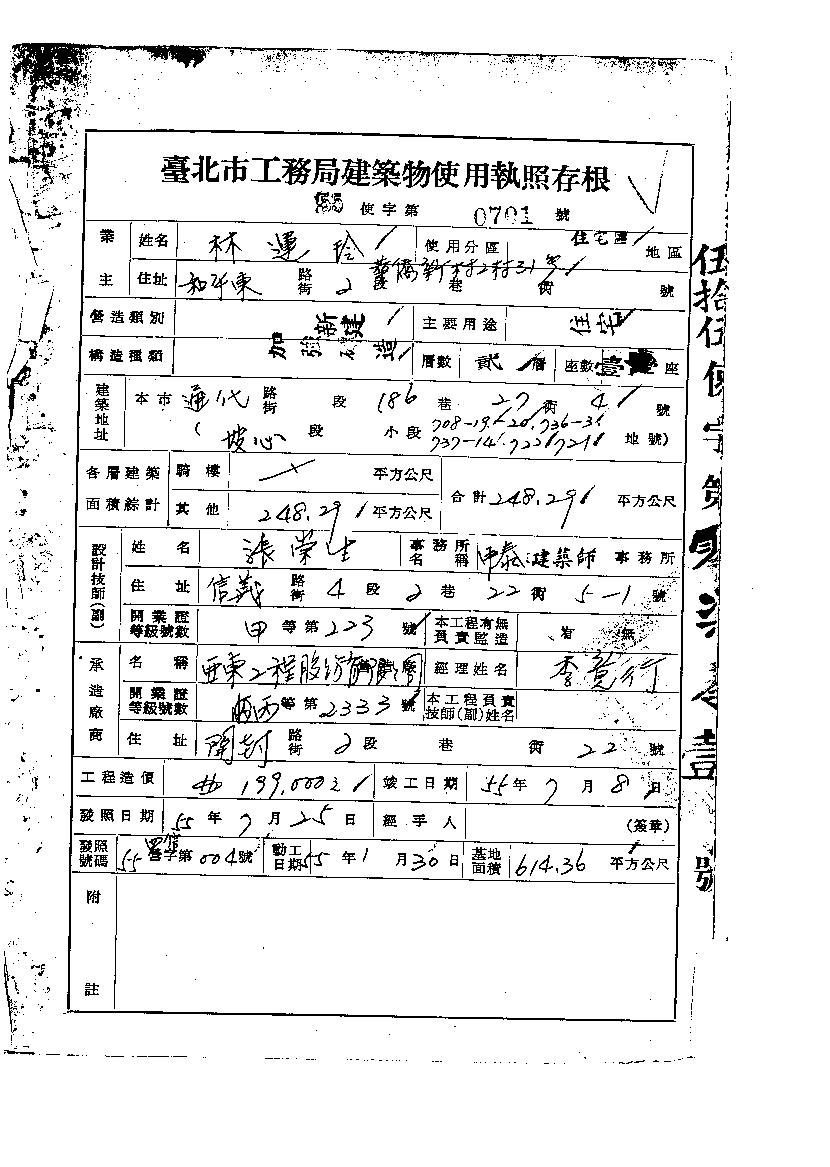 臺北市工務局建築物使用執照存根
使字第 0701 號
業主 姓名 林運玲 使用分區 住宅區 地區
住址 和平東 路街 2 段 華僑新村2村31号 巷 衖 號
營造類別 新建 主要用途 住宅
構造種類 加強磚造 層數 貳層 座數 壹 座
建築地址 本市 通化 路街 段 186 巷 27 衖 4 號
( 坡心 段 小段 708-19.-20.736-3 737-14.722.721 地號)
各層建築面積綜計 騎樓 平方公尺 合計 248.29 平方公尺
其他 248.29 平方公尺
設計技師(副) 姓名 張榮生 事務所名稱 中泰建築師 事務所
住址 信義 路街 4 段 2 巷 22 衖 5-1 號
開業證等級號數 甲 等第 223 號 本工程有無負責監造 有 無
承造廠商 名稱 亞東工程股份有限公司 經理姓名
開業證等級號數 丙 等第 2333 號 本工程負責技師(副)姓名
住址 開封 路街 2 段 巷 衖 22 號
工程造價 199,000 竣工日期 55 年 7 月 8 日
發照日期 55 年 7 月 25 日 經手人 (簽章)
發照號碼 55 營字第 004 號 動工日期 55 年 1 月 30 日 基地面積 614.36 平方公尺
附註
伍拾伍使字第零柒零壹號